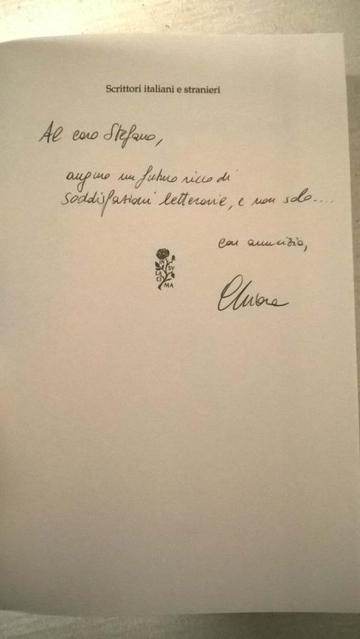 Scrittori italiani e stranieri
Al caro Stefano,
auguro un futuro ricco di
soddisfazioni letterarie, e non solo....
con amicizia,
IN SV
LA CI
MA
Chiara